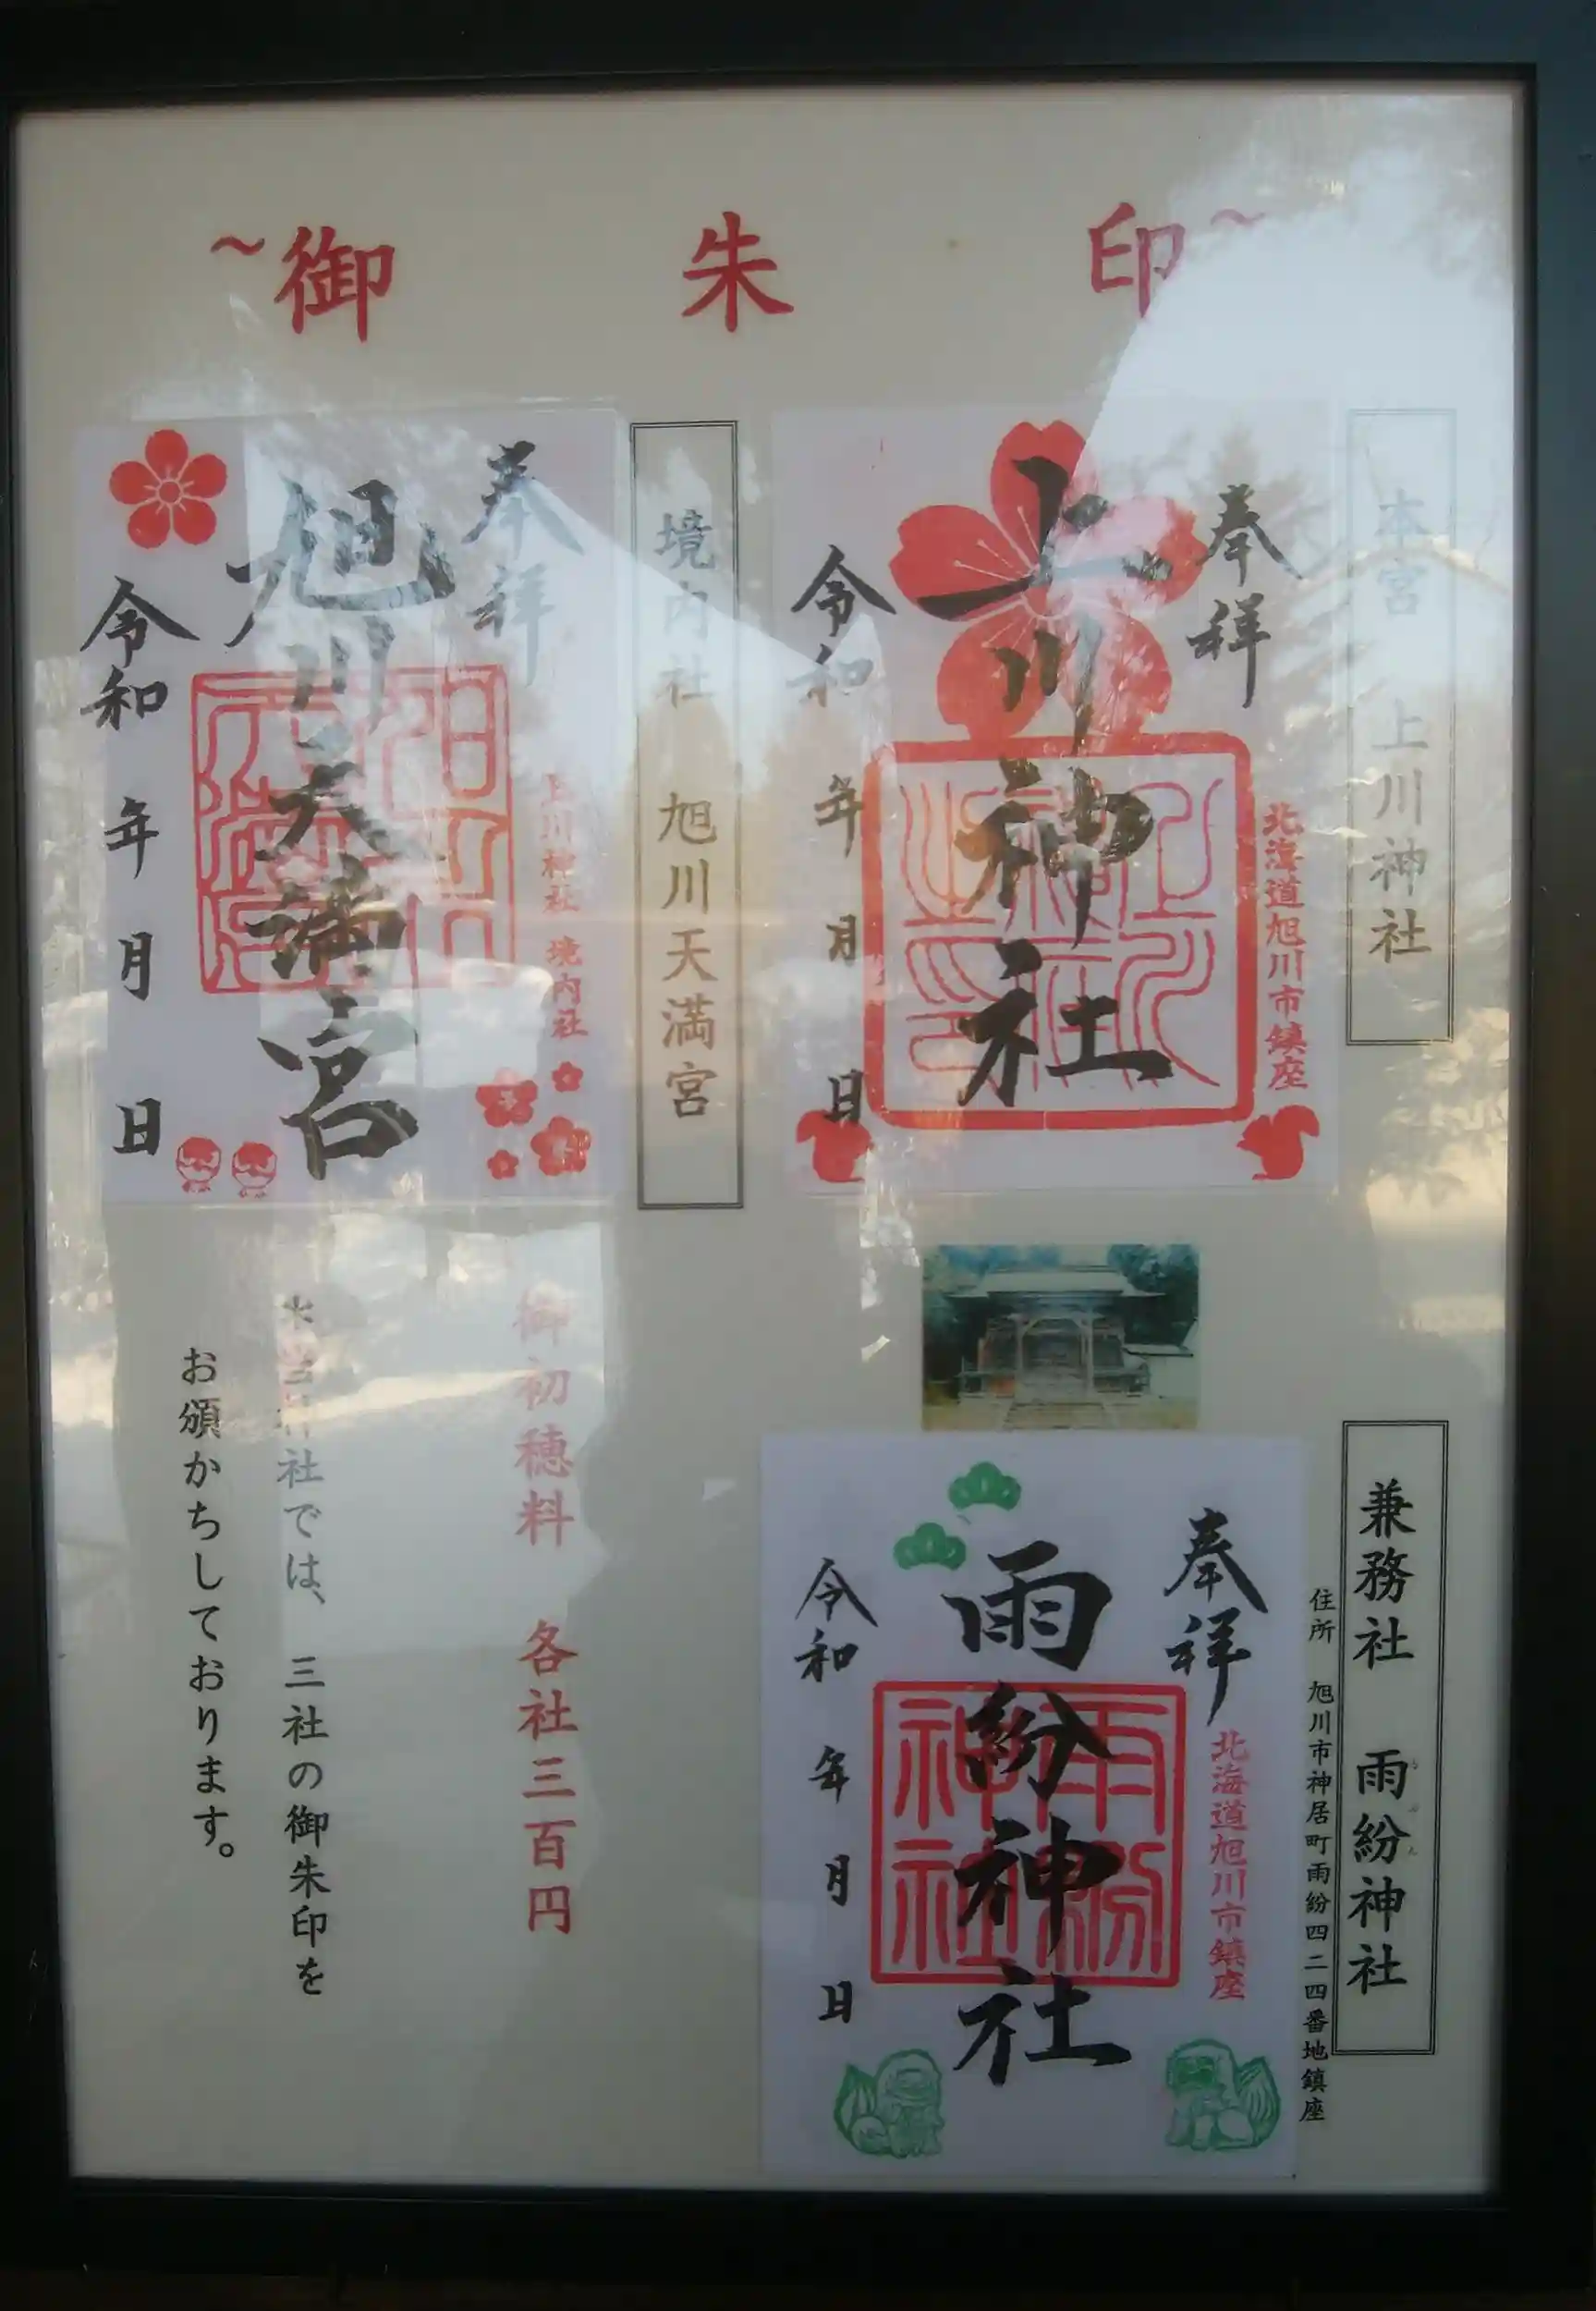 ~御朱印~
本宮 上川神社
奉祥
北海道旭川市鎮座
上川神社
令和 年 月 日
境内社 旭川天満宮
奉祥
上川神社 境内社
旭川天満宮
令和 年 月 日
兼務社 雨紛神社
住所 旭川市神居町雨紛四二四番地鎮座
奉祥
北海道旭川市鎮座
雨紛神社
雨紛神社
令和 年 月 日
御初穂料 各社三百円
社では、三社の御朱印を
お頒かちしております。